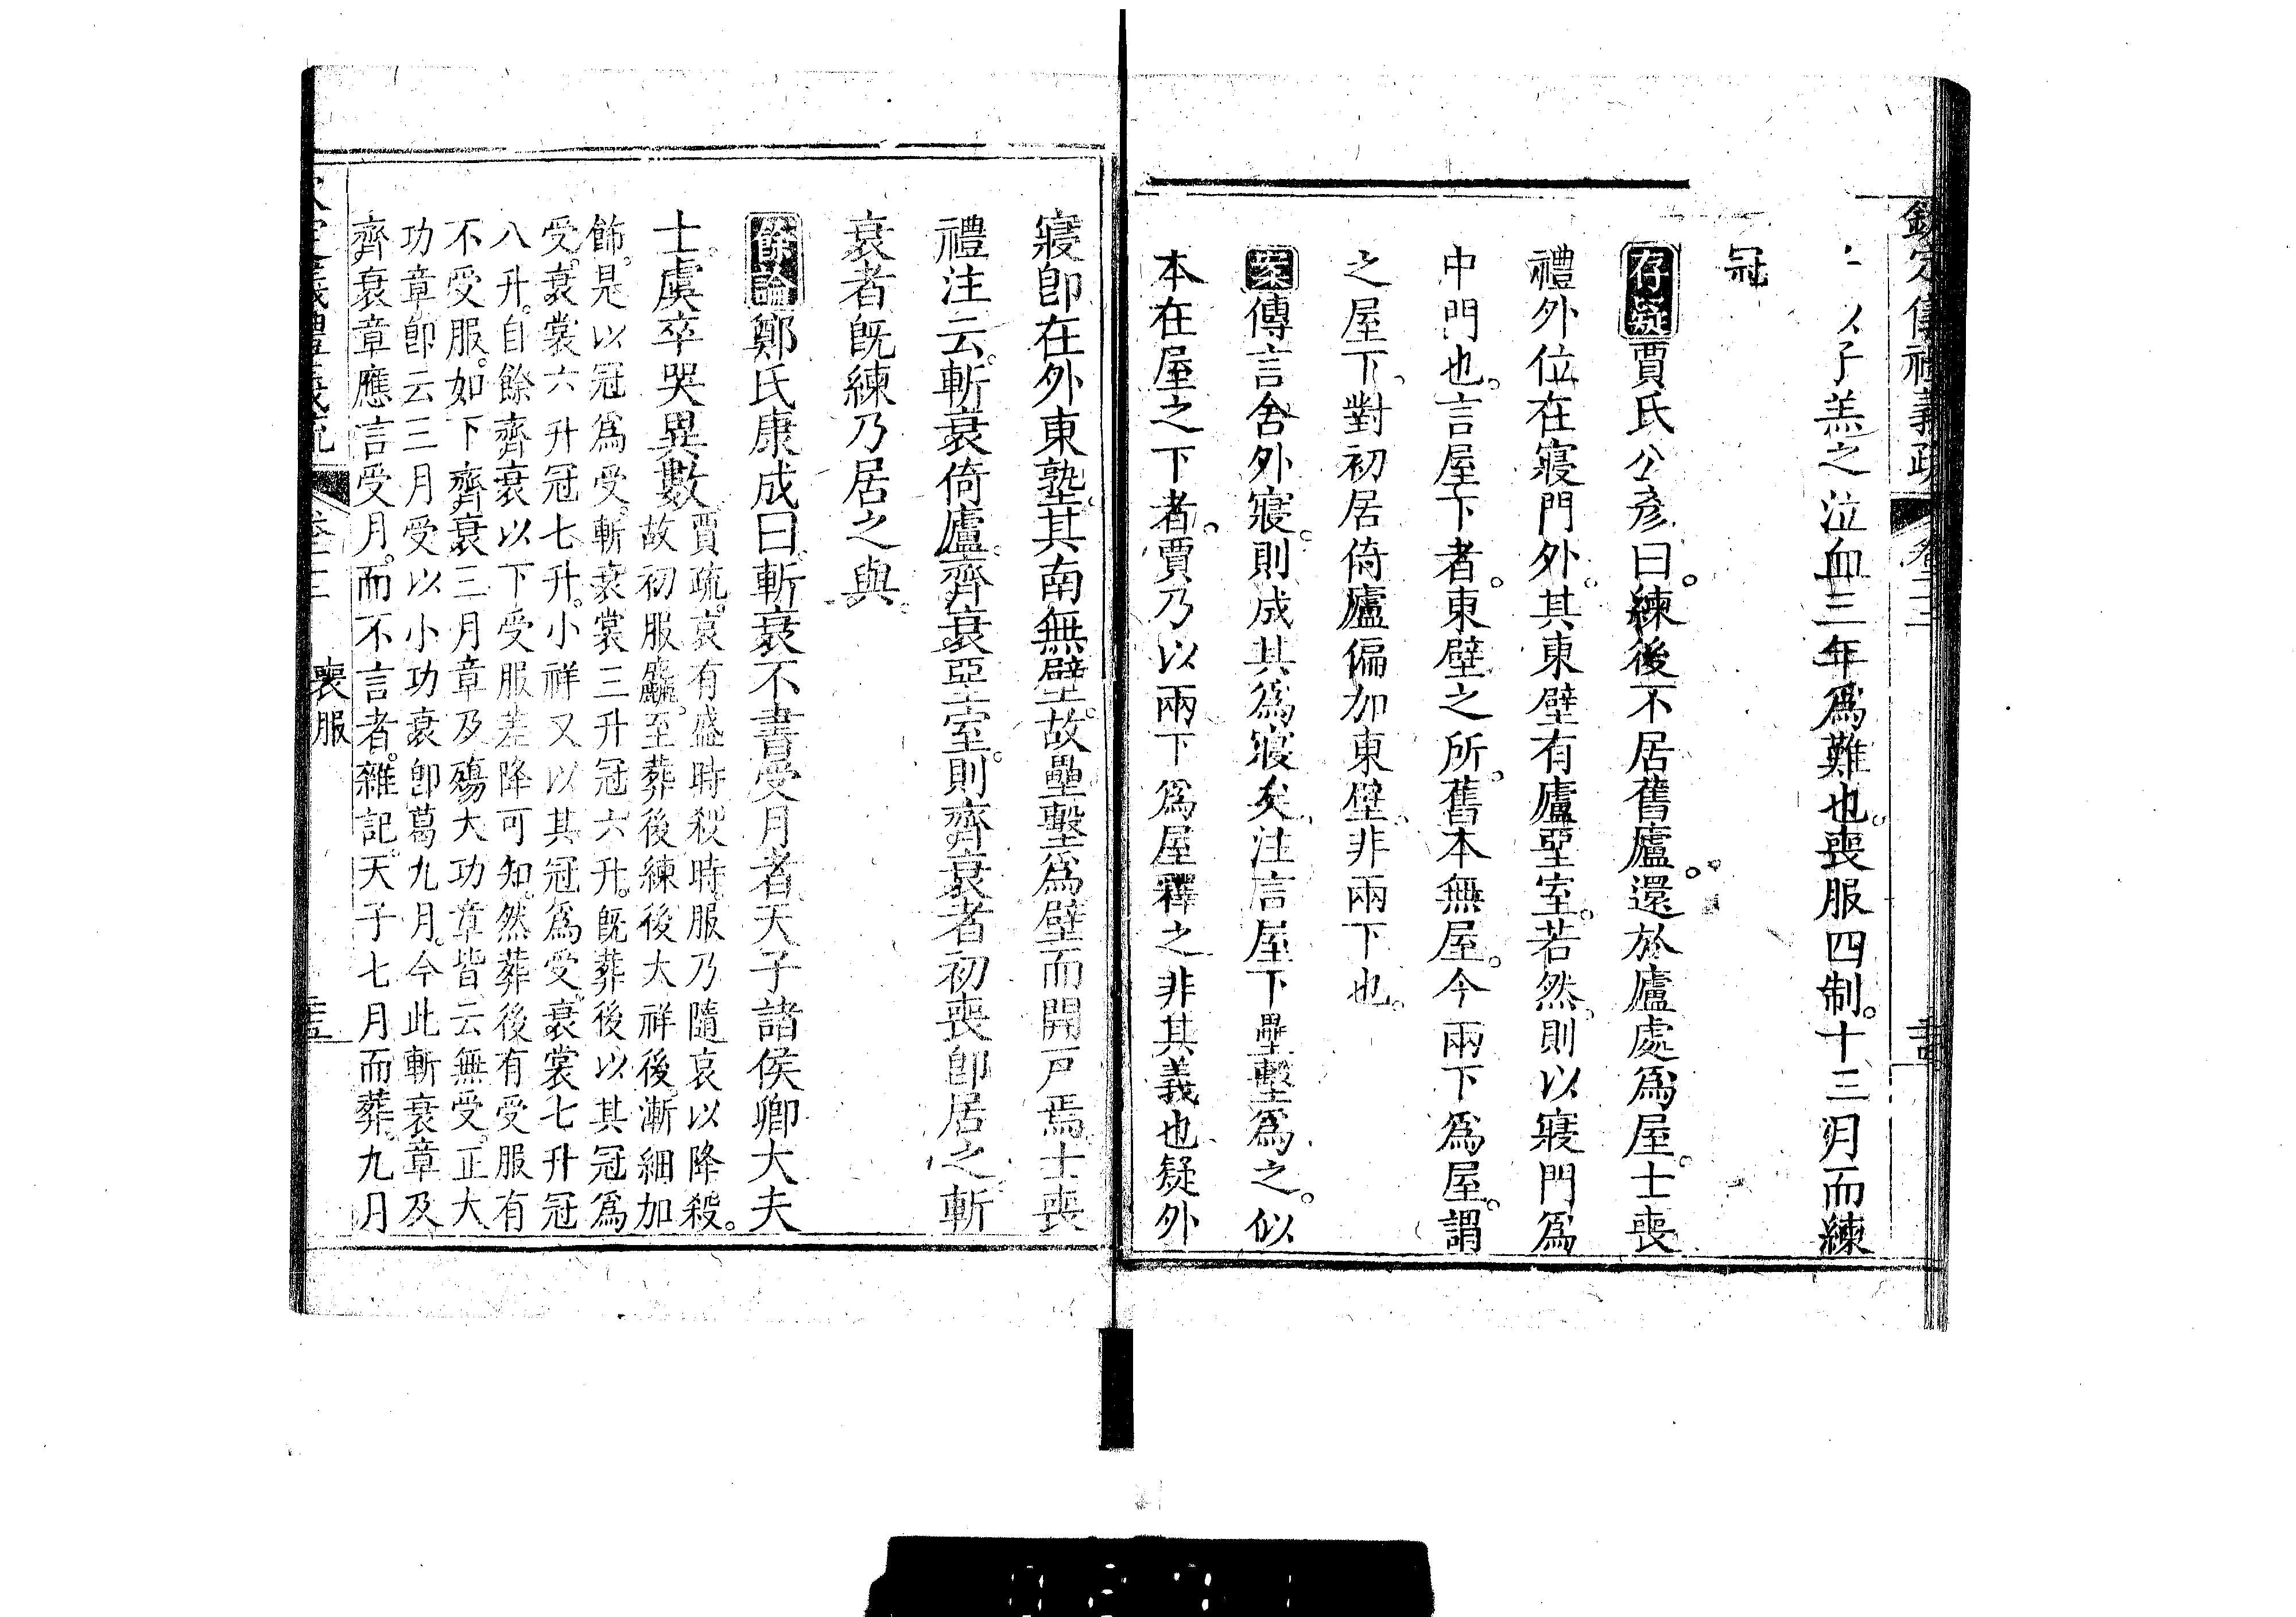 欽定儀禮義疏 卷二十二 二十四
以子羔之泣血三年爲難也。喪服四制。十三月而練
冠
存疑賈氏公彥曰。練後不居舊廬。還於廬處爲屋。士喪
禮外位在寢門外。其東壁有廬堊室。若然。則以寢門爲
中門也。言屋下者。東壁之所。舊本無屋。今兩下爲屋。謂
之屋下。對初居倚廬偏加東壁。非兩下也。
案傳言舍外寢。則成其爲寢矣。注言屋下壘墼爲之。似
本在屋之下者。賈乃以兩下爲屋釋之。非其義也。疑外
寢卽在外東塾。其南無壁。故壘墼爲壁而開戸焉。士喪
禮注云。斬衰倚廬。齊衰堊室。則齊衰者初喪卽居之。斬
衰者旣練乃居之與。
餘論鄭氏康成曰。斬衰不書受月者。天子諸侯卿大夫
士。虞卒哭異數。賈疏。哀有盛時殺時。服乃隨哀以降殺。
故初服麤。至葬後練後大祥後。漸細加
飾。是以冠爲受。斬衰裳三升冠六升。旣葬後以其冠爲
受。衰裳六升冠七升。小祥又以其冠爲受。衰裳七升冠
八升。自餘齊衰以下受服差降可知。然葬後有受服有
不受服。如下齊衰三月章及殤大功章皆云無受。正大
功章卽云三月受以小功衰卽葛九月。今此斬衰章及
齊衰章應言受月。而不言者。雜記。天子七月而葬。九月
喪服